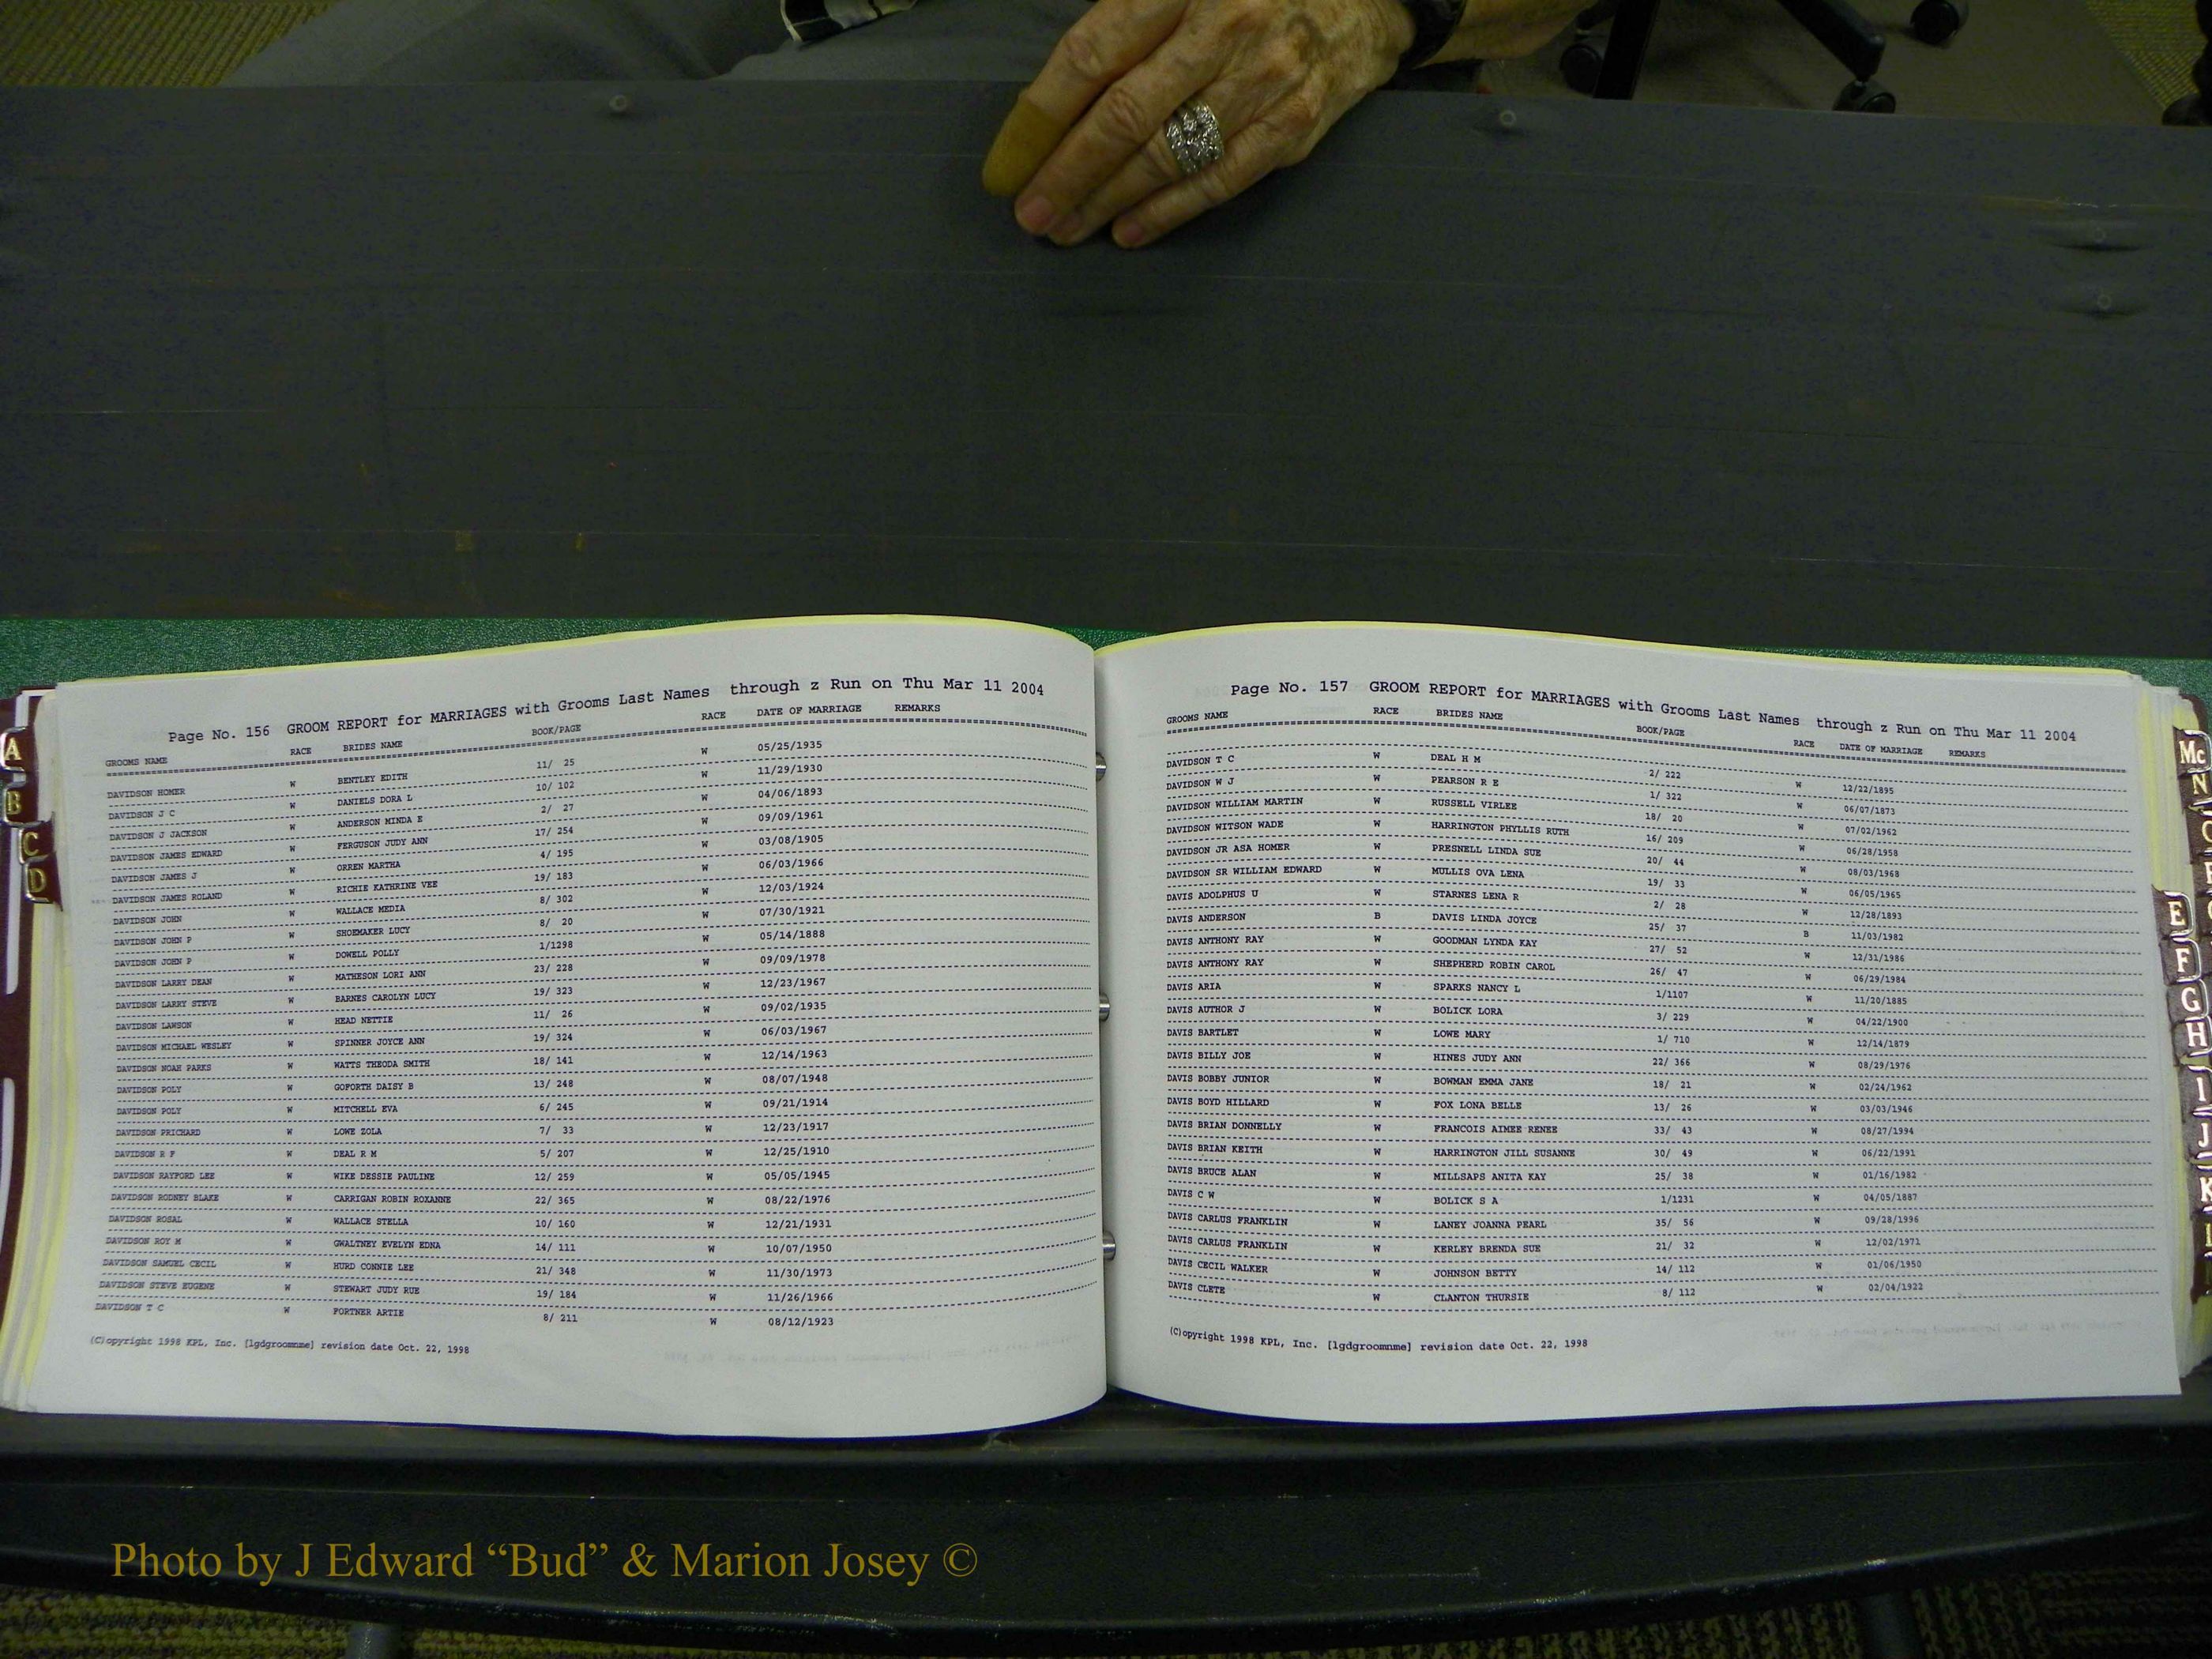 Page No. 156 GROOM REPORT for MARRIAGES with Grooms Last Names through z Run on Thu Mar 11 2004
GROOMS NAME RACE BRIDES NAME BOOK/PAGE RACE DATE OF MARRIAGE REMARKS
DAVIDSON HOMER W BENTLEY EDITH 11/ 25 W 05/25/1935
DAVIDSON J C W DANIELS DORA L 10/ 102 W 11/29/1930
DAVIDSON J JACKSON W ANDERSON MINDA E 2/ 27 W 04/06/1893
DAVIDSON JAMES EDWARD W FERGUSON JUDY ANN 17/ 254 W 09/09/1961
DAVIDSON JAMES J W ORREN MARTHA 4/ 195 W 03/08/1905
DAVIDSON JAMES ROLAND W RICHIE KATHRINE VEE 19/ 183 W 06/03/1966
DAVIDSON JOHN W WALLACE MEDIA 8/ 302 W 12/03/1924
DAVIDSON JOHN P W SHOEMAKER LUCY 8/ 20 W 07/30/1921
DAVIDSON JOHN P W DOWELL POLLY 1/1298 W 05/14/1888
DAVIDSON LARRY DEAN W MATHESON LORI ANN 23/ 228 W 09/09/1978
DAVIDSON LARRY STEVE W BARNES CAROLYN LUCY 19/ 323 W 12/23/1967
DAVIDSON LAWSON W HEAD NETTIE 11/ 26 W 09/02/1935
DAVIDSON MICHAEL WESLEY W SPINNER JOYCE ANN 19/ 324 W 06/03/1967
DAVIDSON NOAH PARKS W WATTS THEODA SMITH 18/ 141 W 12/14/1963
DAVIDSON POLY W GOFORTH DAISY B 13/ 248 W 08/07/1948
DAVIDSON POLY W MITCHELL EVA 6/ 245 W 09/21/1914
DAVIDSON PRICHARD W LOWE ZOLA 7/ 33 W 12/23/1917
DAVIDSON R F W DEAL R M 5/ 207 W 12/25/1910
DAVIDSON RAYFORD LEE W WIKE DESSIE PAULINE 12/ 259 W 05/05/1945
DAVIDSON RODNEY BLAKE W CARRIGAN ROBIN ROXANNE 22/ 365 W 08/22/1976
DAVIDSON ROSAL W WALLACE STELLA 10/ 160 W 12/21/1931
DAVIDSON ROY M W GWALTNEY EVELYN EDNA 14/ 111 W 10/07/1950
DAVIDSON SAMUEL CECIL W HURD CONNIE LEE 21/ 348 W 11/30/1973
DAVIDSON STEVE EUGENE W STEWART JUDY RUE 19/ 184 W 11/26/1966
DAVIDSON T C W FORTNER ARTIE 8/ 211 W 08/12/1923
(C)opyright 1998 KPL, Inc. [lgdgroomnme] revision date Oct. 22, 1998
Page No. 157 GROOM REPORT for MARRIAGES with Grooms Last Names through z Run on Thu Mar 11 2004
GROOMS NAME RACE BRIDES NAME BOOK/PAGE RACE DATE OF MARRIAGE REMARKS
DAVIDSON T C W DEAL H M 2/ 222 W 12/22/1895
DAVIDSON W J W PEARSON R E 1/ 322 W 06/07/1873
DAVIDSON WILLIAM MARTIN W RUSSELL VIRLEE 18/ 20 W 07/02/1962
DAVIDSON WITSON WADE W HARRINGTON PHYLLIS RUTH 16/ 209 W 06/28/1958
DAVIDSON JR ASA HOMER W PRESNELL LINDA SUE 20/ 44 W 08/03/1968
DAVIDSON SR WILLIAM EDWARD W MULLIS OVA LENA 19/ 33 W 06/05/1965
DAVIS ADOLPHUS U W STARNES LENA R 2/ 28 W 12/28/1893
DAVIS ANDERSON B DAVIS LINDA JOYCE 25/ 37 B 11/03/1982
DAVIS ANTHONY RAY W GOODMAN LYNDA KAY 27/ 52 W 12/31/1986
DAVIS ANTHONY RAY W SHEPHERD ROBIN CAROL 26/ 47 W 06/29/1984
DAVIS ARIA W SPARKS NANCY L 1/1107 W 11/20/1885
DAVIS AUTHOR J W BOLICK LORA 3/ 229 W 04/22/1900
DAVIS BARTLET W LOWE MARY 1/ 710 W 12/14/1879
DAVIS BILLY JOE W HINES JUDY ANN 22/ 366 W 08/29/1976
DAVIS BOBBY JUNIOR W BOWMAN EMMA JANE 18/ 21 W 02/24/1962
DAVIS BOYD HILLARD W FOX LONA BELLE 13/ 26 W 03/03/1946
DAVIS BRIAN DONNELLY W FRANCOIS AIMEE RENEE 33/ 43 W 08/27/1994
DAVIS BRIAN KEITH W HARRINGTON JILL SUSANNE 30/ 49 W 06/22/1991
DAVIS BRUCE ALAN W MILLSAPS ANITA KAY 25/ 38 W 01/16/1982
DAVIS C W W BOLICK S A 1/1231 W 04/05/1887
DAVIS CARLUS FRANKLIN W LANEY JOANNA PEARL 35/ 56 W 09/28/1996
DAVIS CARLUS FRANKLIN W KERLEY BRENDA SUE 21/ 32 W 12/02/1971
DAVIS CECIL WALKER W JOHNSON BETTY 14/ 112 W 01/06/1950
DAVIS CLETE W CLANTON THURSIE 8/ 112 W 02/04/1922
(C)opyright 1998 KPL, Inc. [lgdgroomnme] revision date Oct. 22, 1998
A
B
C
D
Mc
N
E
F
G
H
I
J
K
Photo by J Edward “Bud” & Marion Josey ©